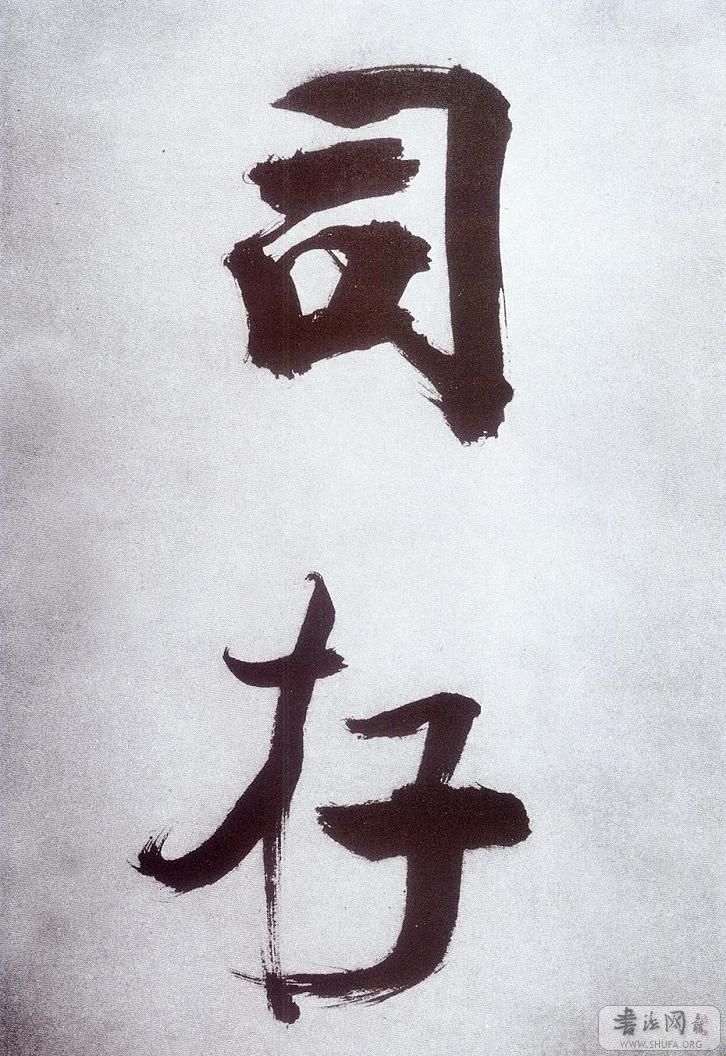 司
存
书法网
WWW.SHUFA.ORG